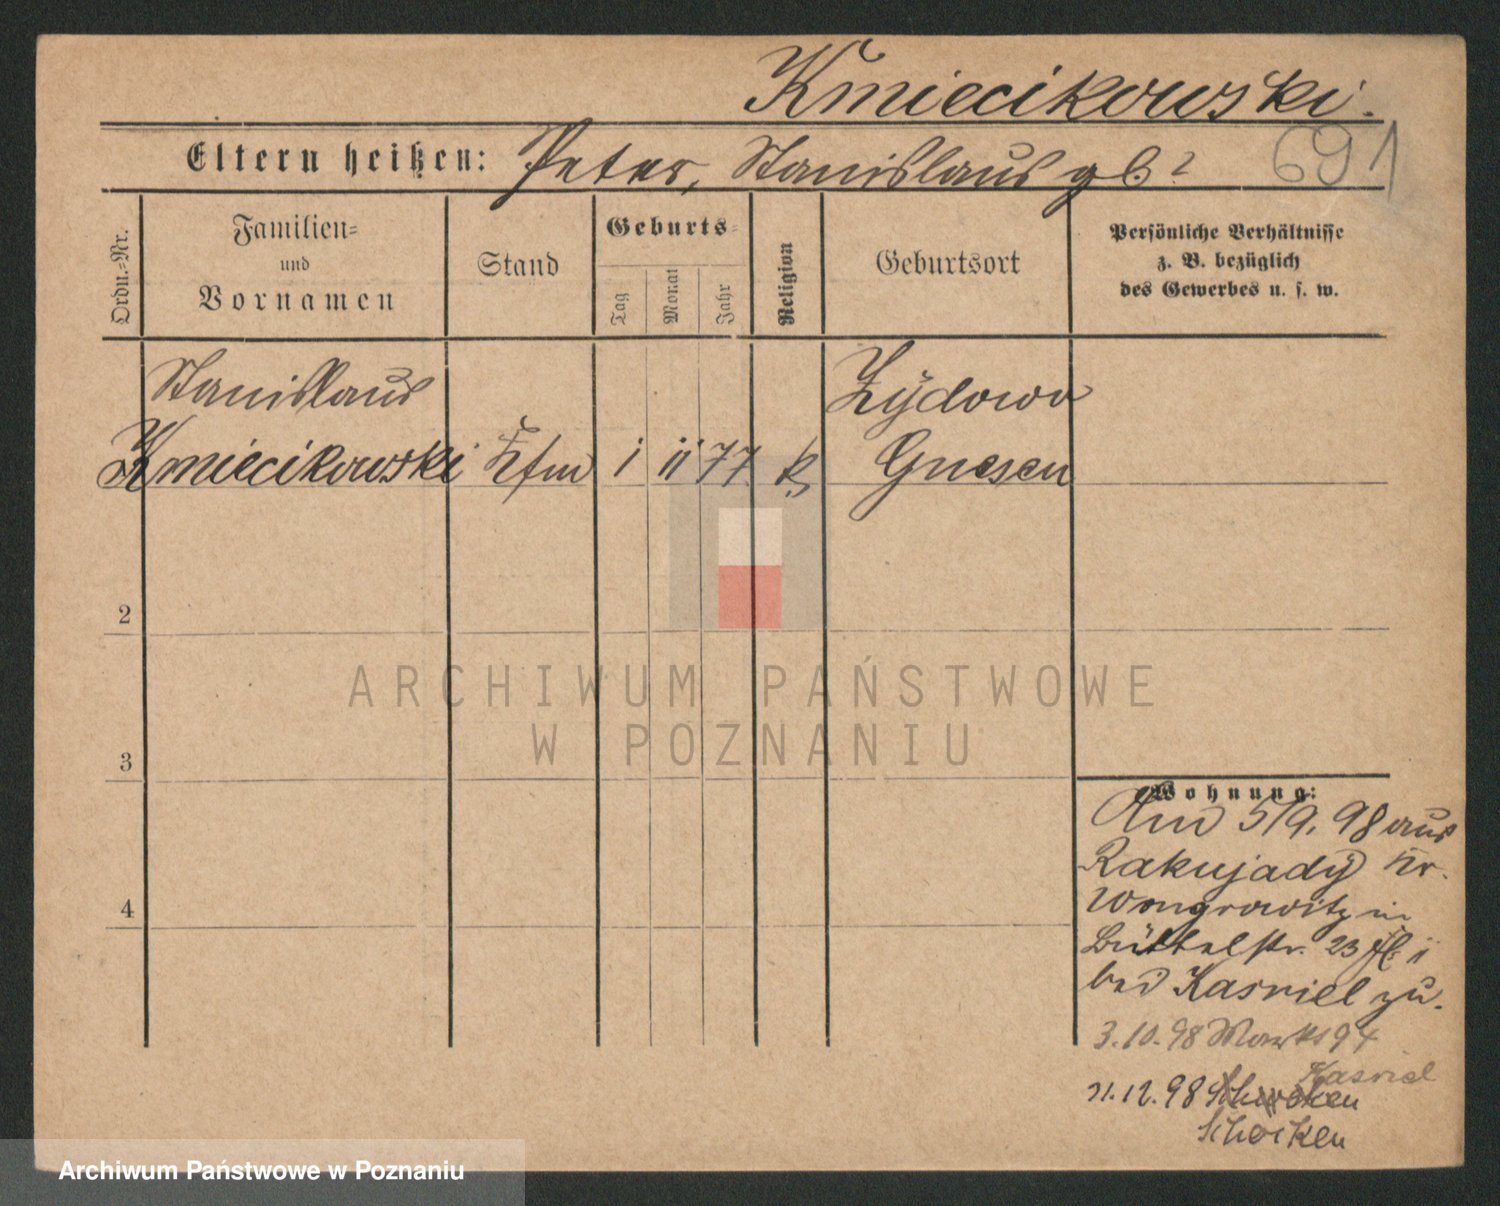 Kmiecikowski.
Eltern heißen: Peter, Stanislaus gb? 691
Ordn.-Nr.
Familien-
und
Vornamen
Stand
Geburts-
Tag
Monat
Jahr
Religion
Geburtsort
Persönliche Verhältnisse
z. B. bezüglich
des Gewerbes u. s. w.
Stanislaus Zydowo
Kmiecikowski Kfm 1 11 77 k. Gnesen
2
3
4
Wohnung:
Am 5/9. 98 aus
Rakujady Kr.
Wongrowitz in
Büttelstr. 23
bei Kasriel zu.
3.10.98 Markt 94
Kasriel
21.12.98 Schocken
Schocken
ARCHIWUM PAŃSTWOWE
W POZNANIU
Archiwum Państwowe w Poznaniu